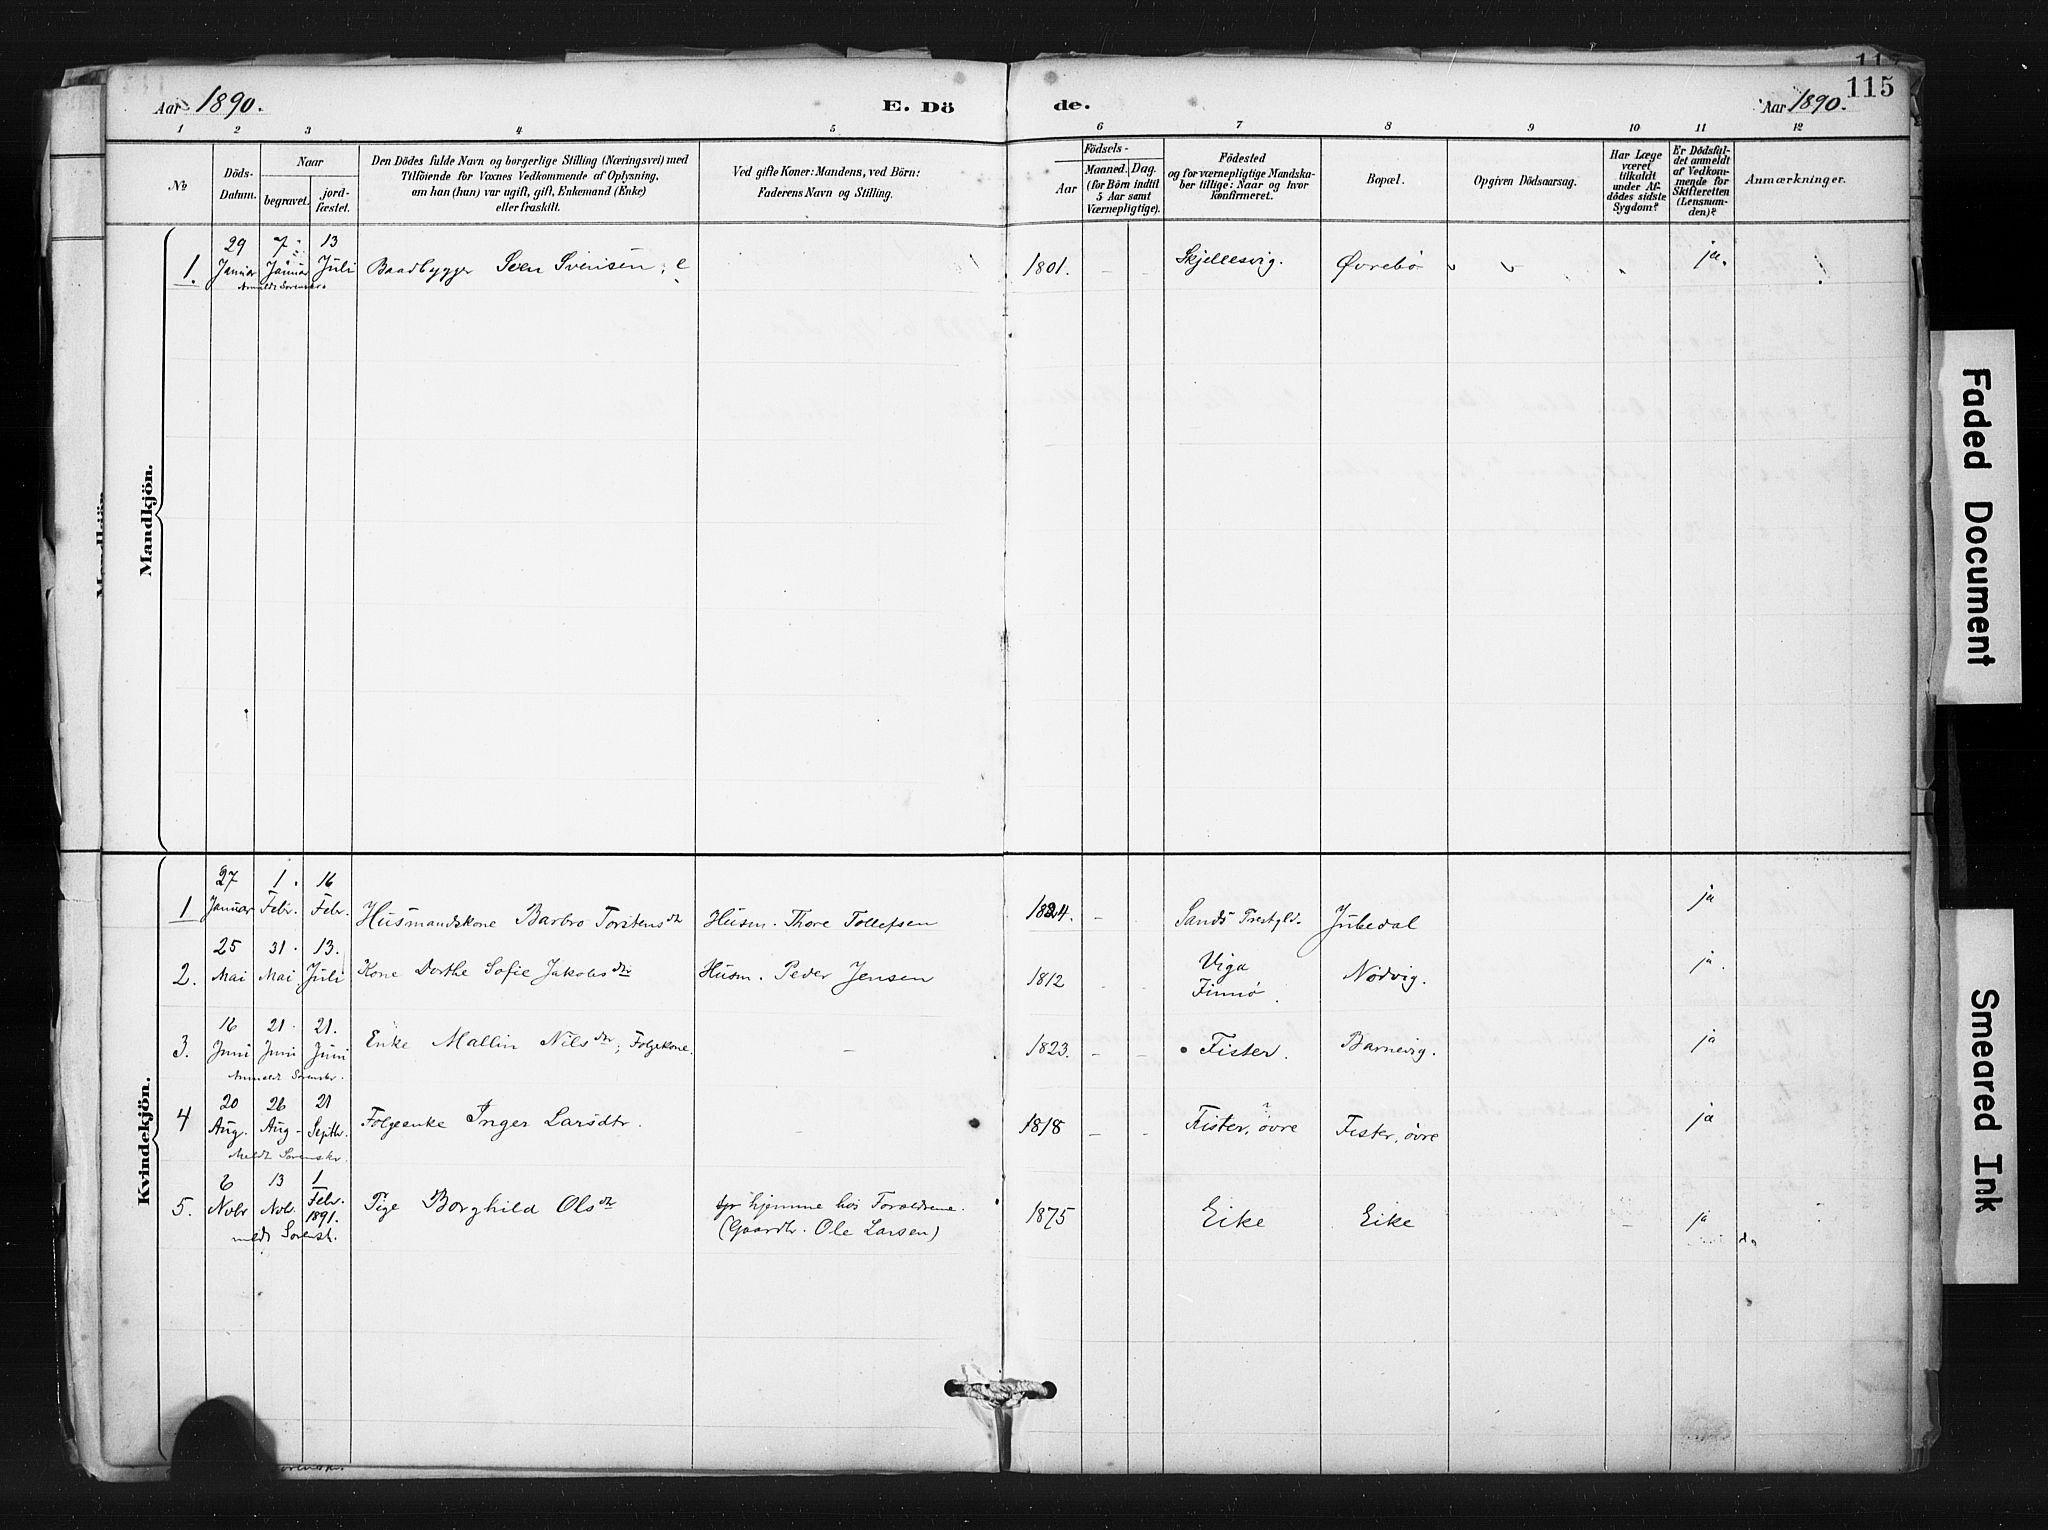 115
Aar 1890.
E. Dö de.
Aar 1890.
1 2 3 4 5 6 7 8 9 10 11 12
No
Döds-Datum.
Naar
begravet.
jord-fæstet.
Den Dödes fulde Navn og borgerlige Stilling (Næringsvei) med
Tilföiende for Voxnes Vedkommende af Oplysning,
om han (hun) var ugift, gift, Enkemand (Enke)
eller fraskilt.
Ved gifte Koner: Mandens, ved Börn:
Faderens Navn og Stilling.
Födsels-
Aar
Maaned. Dag.
(for Börn indtil
5 Aar samt
Værnepligtige).
Födested
og for værnepligtige Mandska-
ber tillige: Naar og hvor
konfirmeret.
Bopæl.
Opgiven Dödsaarsag.
Har Læge
været
tilkaldt
under Af-
dödes sidste
Sygdom?
Er Dödsfal-
det anmeldt
af Vedkom-
mende for
Skifteretten
(Lensman-
den)?
Anmærkninger.
Mandkjön.
29 7 13
1. Januar Januar Juli Baadbygger Sven Svensen, e 1801. Skjellesvig. Øvrebø ja.
Anmeldt Sorenskr.
Kvindekjön.
27 1. 16
1 Januar Febr. Febr. Husmandskone Barbro Torstensdtr Husm. Thore Tollefsen 1824. Sands Prestgld. Jubedal ja
25 31. 13.
2. Mai Mai Juli Kone Dorthe Sofie Jakobsdtr Husm. Peder Jensen 1812 Viga Finnø. Nødvig. ja.
16 21. 21.
3. Juni Juni Juni Enke Mallin Nilsdtr, Folgekone. 1823. Fister. Barnevig. ja
Anmeldt Sorenskr.
20 26 21
4 Aug. Aug. Septbr. Folgeenke Inger Larsdtr. 1818 Fister, övre Fister, övre ja
Meldt Sorenskr.
6 13 1
5. Novbr Novb. Febr. 1891. Pige Borghild Olsdtr hjemme hos Foraldrene. 1875 Eike Eike ja
(Gaardbr. Ole Larsen)
meldt Sorensk.
Faded Document
Smeared Ink